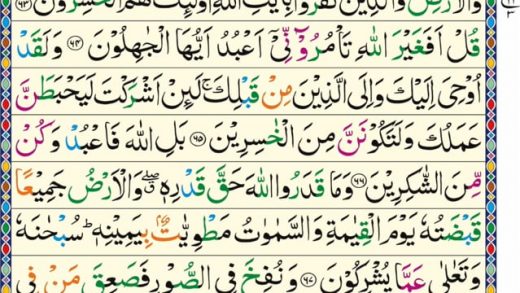 وَالْاَرْضِ وَالَّذِيْنَ كَفَرُوْا بِاٰيٰتِ اللّٰهِ اُولٰٓئِكَ هُمُ الْخٰسِرُوْنَ ۝۶۳
قُلْ اَفَغَيْرَ اللّٰهِ تَاْمُرُوْٓنِّيْٓ اَعْبُدُ اَيُّهَا الْجٰهِلُوْنَ ۝۶۴ وَلَقَدْ
اُوْحِيَ اِلَيْكَ وَاِلَى الَّذِيْنَ مِنْ قَبْلِكَ ۚ لَىِٕنْ اَشْرَكْتَ لَيَحْبَطَنَّ
عَمَلُكَ وَلَتَكُوْنَنَّ مِنَ الْخٰسِرِيْنَ ۝۶۵ بَلِ اللّٰهَ فَاعْبُدْ وَكُنْ
مِّنَ الشّٰكِرِيْنَ ۝۶۶ وَمَا قَدَرُوا اللّٰهَ حَقَّ قَدْرِهٖ ۖ وَالْاَرْضُ جَمِيْعًا
قَبْضَتُهٗ يَوْمَ الْقِيٰمَةِ وَالسَّمٰوٰتُ مَطْوِيّٰتٌۢ بِيَمِيْنِهٖ ؕ سُبْحٰنَهٗ
وَتَعٰلٰى عَمَّا يُشْرِكُوْنَ ۝۶۷ وَنُفِخَ فِي الصُّوْرِ فَصَعِقَ مَنْ فِي